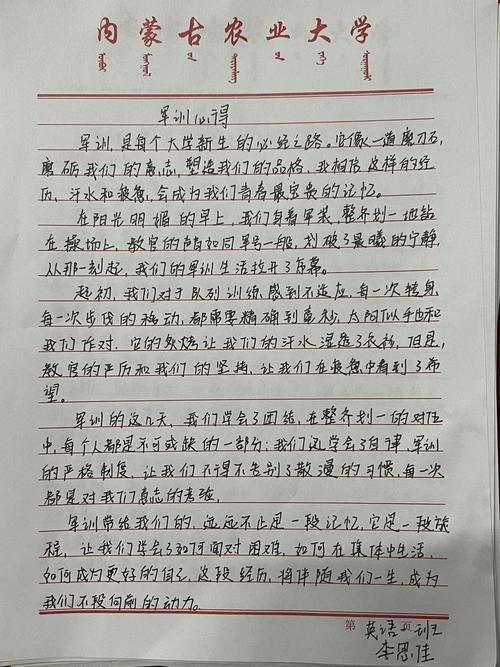 内蒙古农业大学
军训心得
军训,是每个大学新生的必经之路。它像一道磨刀石,
磨砺我们的意志,塑造我们的品格,我相信这样的经
历,汗水和疲惫,会成为我们青春最宝贵的记忆。
在阳光明媚的早上,我们身着军装,整齐划一地站
在操场上,教官的声音如同军号一般,划破了晨曦的宁静,
从那一刻起,我们的军训生活拉开了序幕。
起初,我们对于队列训练感到不适应,每一次转身,
每一次步伐的移动,都需要精确到毫秒,太阳似乎也和
我们作对,它的炙烤让我们的汗水湿透了衣衫,但是,
教官的严厉和我们的坚持,让我们在疲惫中看到了希
望。
军训的这几天,我们学会了团结,在整齐划一的对伍
中,每个人都是不可或缺的一部分;我们还学会了自律,军训
的严格制度,让我们不得不告别了散漫的习惯,每一次
都是对我们意志的考验。
军训带给我们的,远远不止是一段记忆,它是一段旅
程,让我们学会了如何面对困难,如何在集体中生活,
如何成为更好的自己,这段经历,将伴随我们一生,成为
我们不段向前的动力。
第 页
英语一班
李思佳